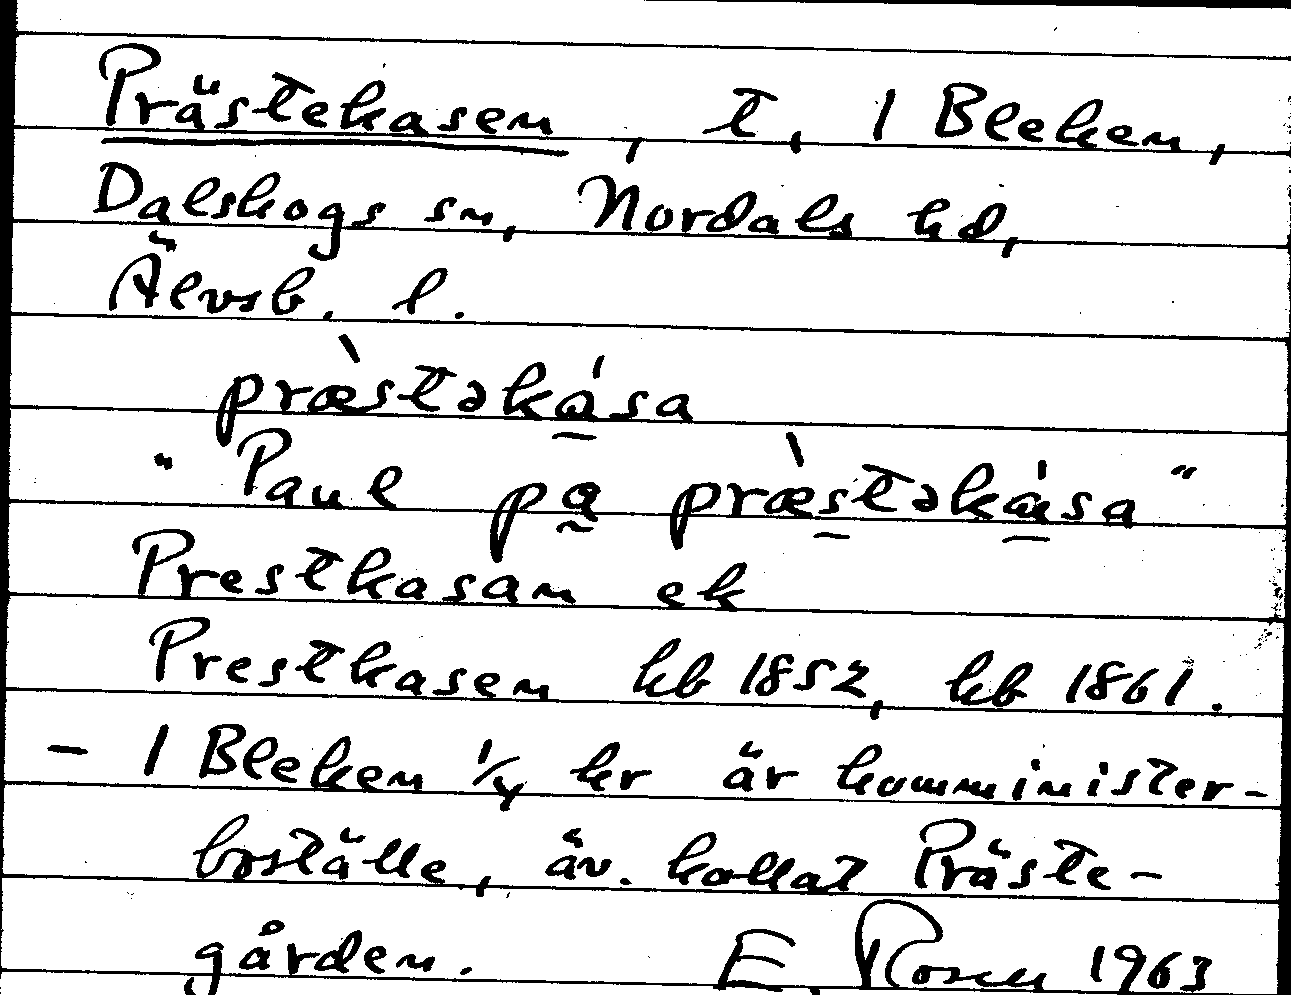 Prästekasen, t, 1 Bleken,
Dalskogs sn, Nordals hd,
Älvsb. l.
præ̀stəká̱sa
"Paul pa̰ præ̀s̱təká̱sa"
Prestkasan ek
Prestkasen hb 1852, hb 1861.
- 1 Bleken 1/4 hr är komminister-
boställe, äv. kallat Präste-
gården. E. Rosen 1963